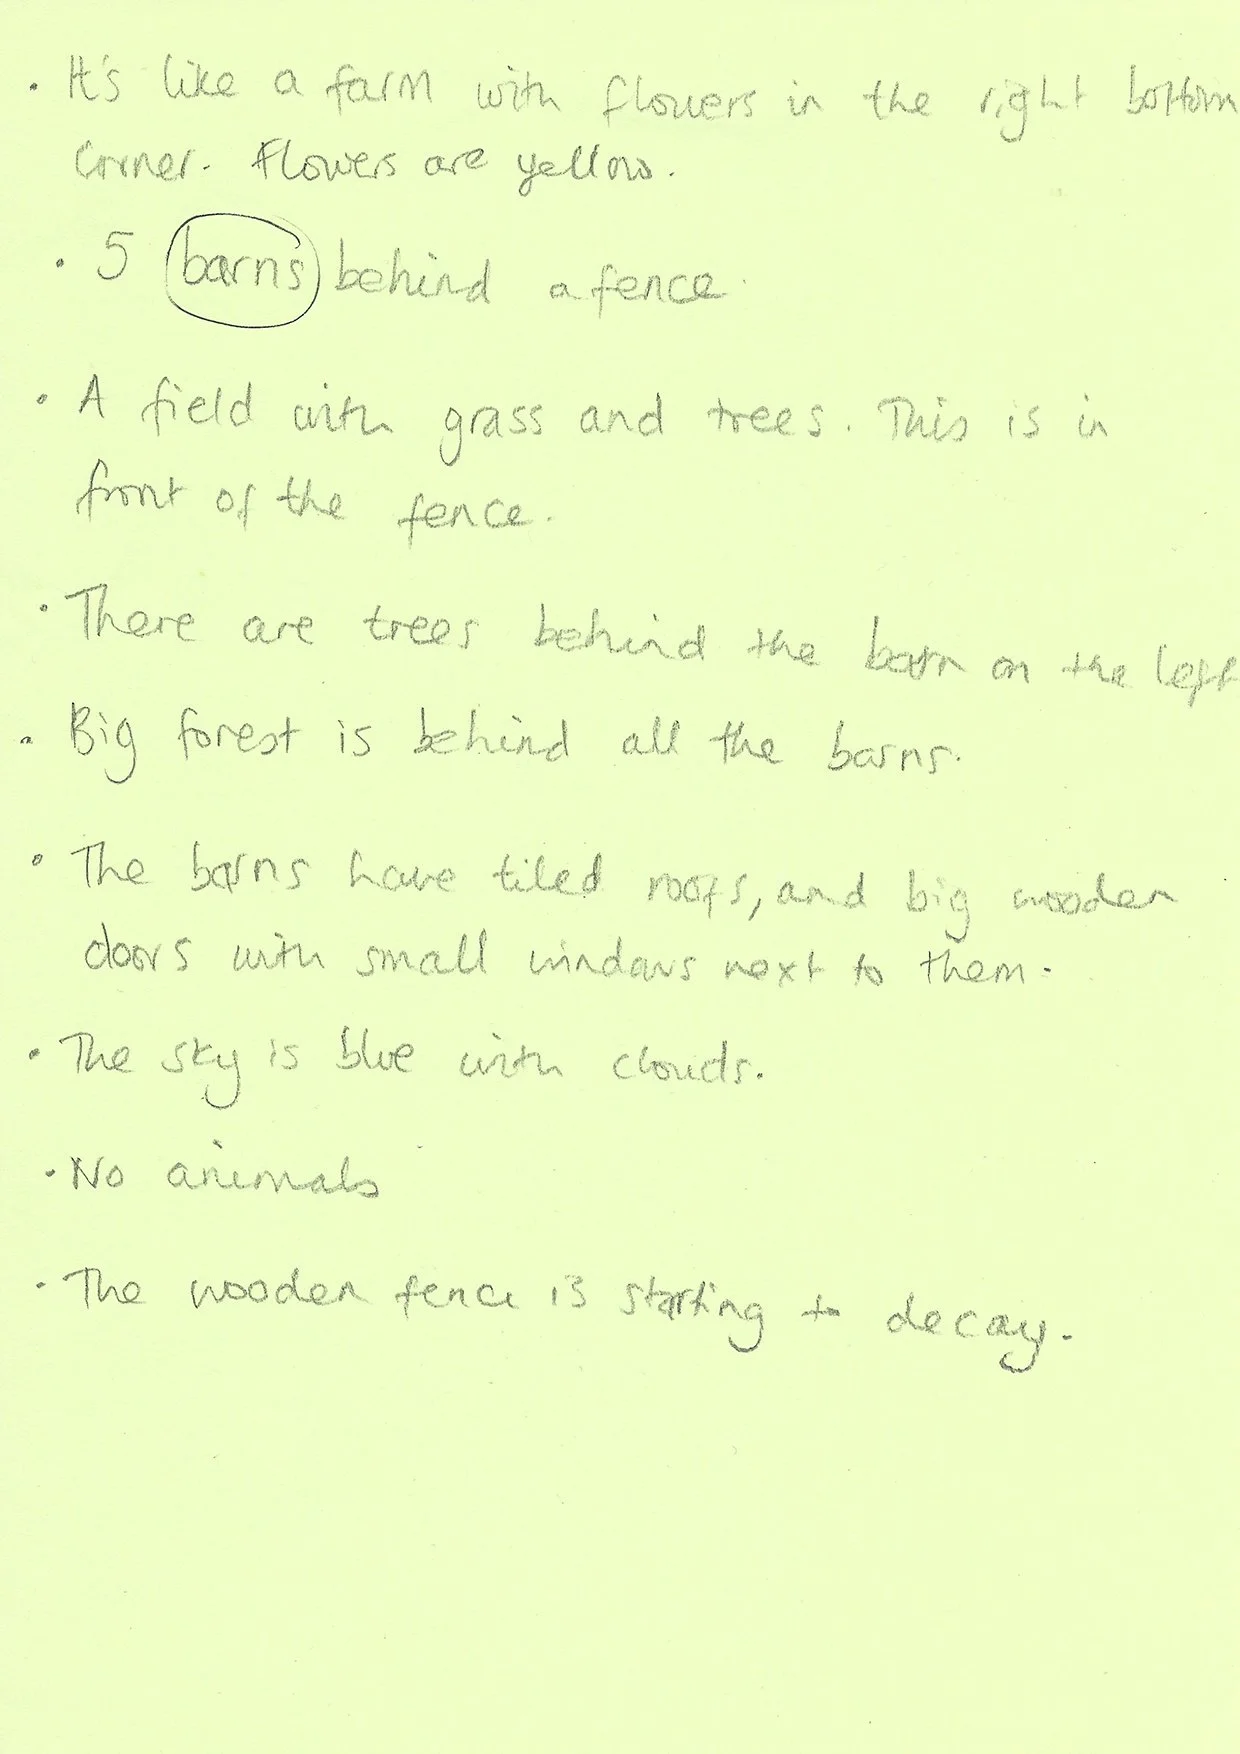 • It's like a farm with flowers in the right bottom
corner. Flowers are yellow.
• 5 barns behind a fence.
• A field with grass and trees. This is in
front of the fence.
• There are trees behind the barn on the left
• Big forest is behind all the barns.
• The barns have tiled roofs, and big wooden
doors with small windows next to them.
• The sky is blue with clouds.
• No animals
• The wooden fence is starting to decay.